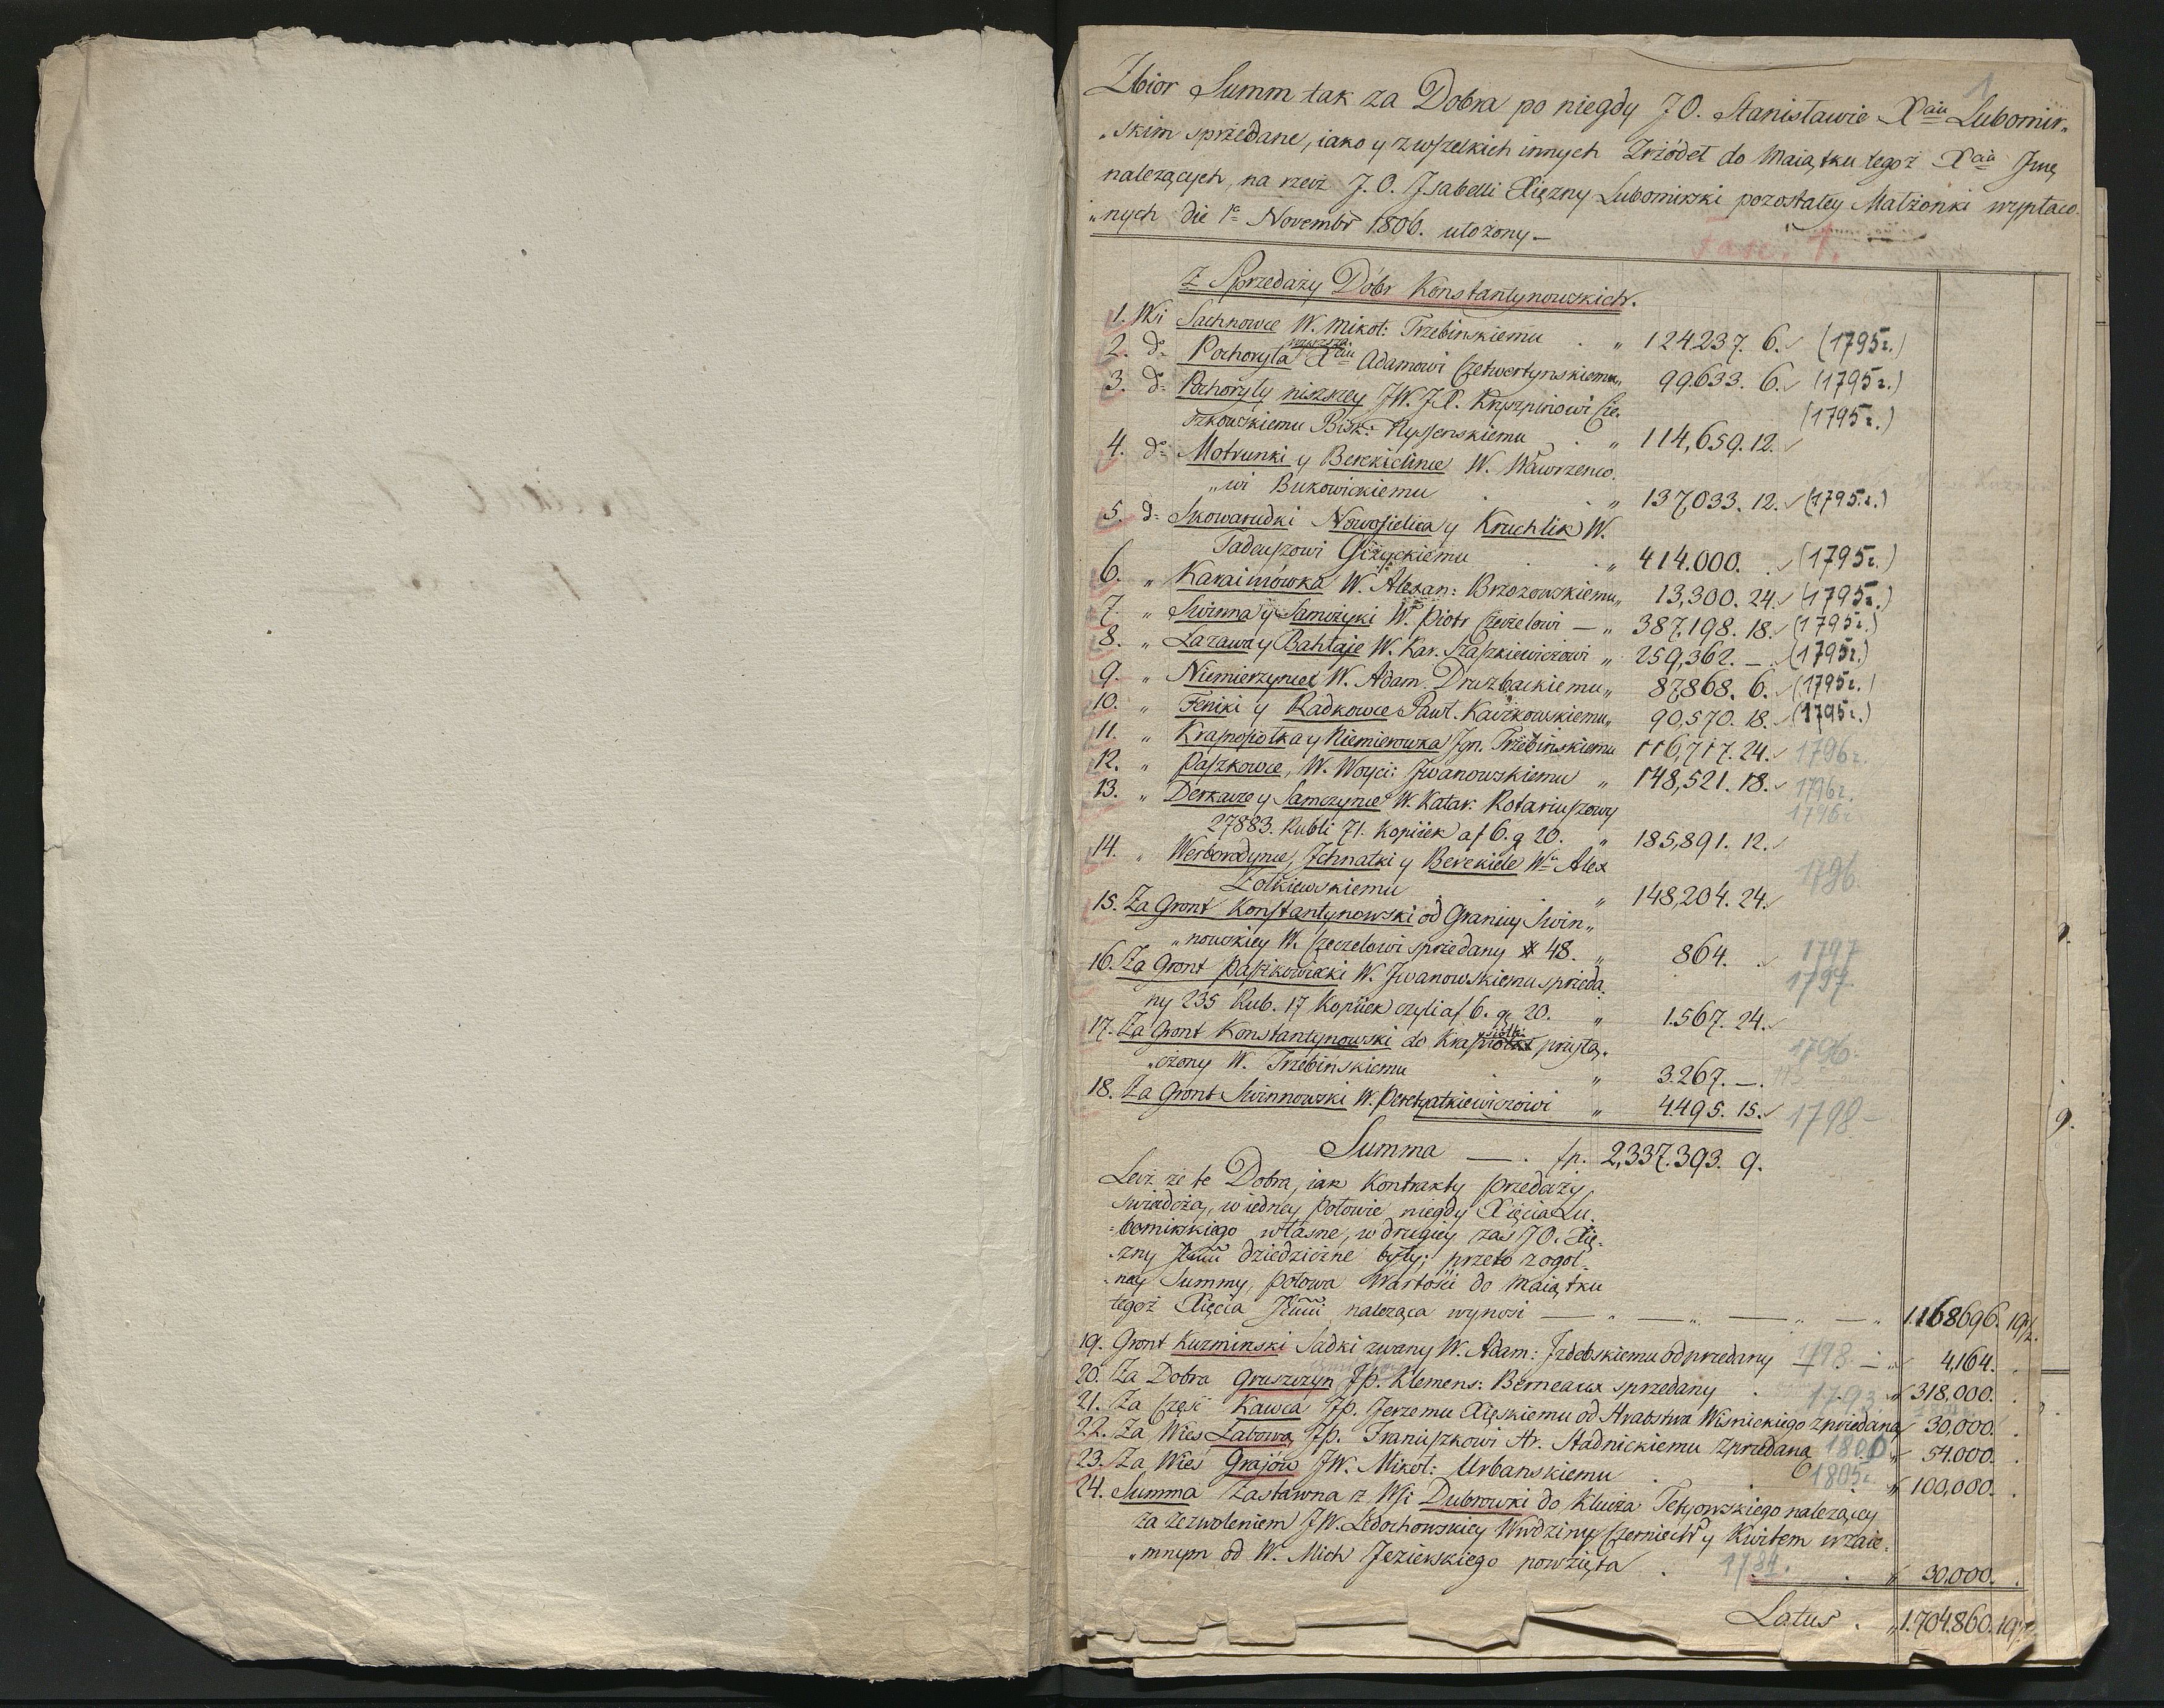 1
Zbior Summ tak za Dobra po niegdy JO. Stanisławie Xciu Lubomir„
„skim sprzedane, iako y z wszelkich innych Zrzódeł do Maiątku tegoż Xcia Jmę
należących, na rzecz J.O. Jsabelli Xiężny Lubomirski pozostałey Małżonki wypłaco„
„nych die 1a Novembr 1806. ułożony —
Fasc. 1.
Z Sprzedaży Dóbr Konstantynowskich.
1. Wsi Sachnowce W. Mikoł: Trzebinskiemu . „ 124237. 6. (1795r.)
wyższa
2. do Pochoryla Xciu Adamowi Czetwertynskiemu „ 99633. 6. (1795r.)
3. do Pochoryły niższey JW. JX. Kryszpinowi Cie„
szkowskiemu Bisk: . „ 114,659. 12. (1795r.)
4. do Motrunki y Berezichnie W. Wawrzenco„
„wi Bukowickiemu . . „ 137033. 12. (1795.r.)
5. do Skowarudki Nowosielica y Kruchlik W.
Tadeuszowi Giżyckiemu . . „ 414.000. . (1795r.)
6. „ Karaimówka W. Alexan: Brzozowskiemu „ 13,300. 24. (1795r.)
7. „ Swinna y Samczyki W. Piotr Czeczelowi — „ 387.198. 18. (1795r.)
8. „ Łazawa y Bahłaje W. Kar. Staszkiewiczowi „ 259,362. — . (1795r.)
9. „ Niemierzynce W. Adam. Druzbackiemu „ 87868. 6. (1795r.)
10. „ Feniki y Radkowce Pawł. Kaczkowskiemu „ 90,570. 18. (1795r.)
11. „ Krasnosiołka y Niemierowka Jgn. Trzebińskiemu 116,717. 24. 1796r.
12. „ Paszkowce, W. Woyci: Jwanowskiemu „ 148,521. 18. 1796r.
13. „ Derkacze y Samczynce W. Katar. Kotariuszowy 1796r.
27883. Rubli 71. Kopiiek a f 6. g 20. „ 185,891. 12.
14. „ Werborodynce, Jchnatki y Berekiele Wu Alex 1796.
Żołkiewskiemu . „ 148,204. 24.
15. Za Gront Konstantynowski od Granicy Swin„
„nowskiey W. Czeczelowi sprzedany # 48. „ 864. . 1797
16. Za Gront Paszkowiecki W. Jwanowskiemu sprzeda„ 1797
ny 235 Rub. 17 Kopiiek czyli a f 6. g 20. „ 1.567. 24.
17. Za Gront Konstantynowski do przyłą„ 1796.
„czony W. Trzebińskiemu . „ 3.267. — .
18. Za Gront Swinnowski W. Peretyatkiewiczowi „ 4.495. 15. 1798 —
Summa — . fp. 2,337.393. 9.
Lecz że te Dobra, iak Kontrakty przedaży
swiadczą, w iedney połowie niegdy Xięcia Lu„
„bomirskiego własne, w drugiey zas JO. Xię„
„żny Jmci dziedziczne były; przeto z ogol„
„ney Summy, połowa Wartości do Maiątku
tegoż Xięcia Jmci należąca wynosi — „ — „ — „ — „ 1.168696. 19½.
19. Gront Kuzminski Sadki zwany W. Adam: Jzdebskiemu odprzedany 1798. — „ 4,164. .
20. Za Dobra Gruszczyn Jp. Klemens: Berneaux sprzedany . 1793 „ 318,000. .
21. Za Część Kawca Jp. Jerzemu Xięskiemu od Hrabstwa Wisnickiego zprzedana „ 30,000. .
22. Za Wies Łabowa Jp. Franciszkowi Hr. Stadnickiemu zprzedana 1800 „ 54.000. .
23. Za Wieś Grajów JW. Mikoł: Urbanskiemu . 1805r. „ 100,000. .
24. Summa Zastawna z Wsi Dubrowki do Klucza Tetyiowskiego należącey
za zezwoleniem JW. Ledochowskiey Wwdziny Czerniech: y Kwitem wzaie„
„mnym od W. Mich Jezierskiego powzięta . 1784. . „ 30.000. .
Latus . „ 1.704.860. 19½